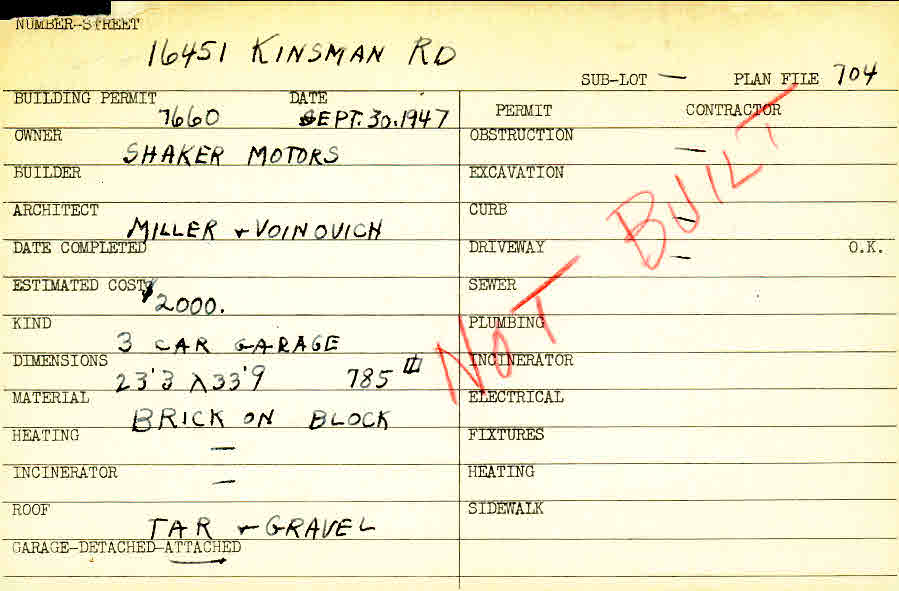 NUMBER-STREET
16451 KINSMAN RD
SUB-LOT — PLAN FILE 704
BUILDING PERMIT DATE
7660 SEPT. 30. 1947
PERMIT CONTRACTOR
OWNER
SHAKER MOTORS
BUILDER
ARCHITECT
MILLER + VOINOVICH
DATE COMPLETED
ESTIMATED COST
$2000.
KIND
3 CAR GARAGE
DIMENSIONS
23'3 X 33'9 785
MATERIAL
BRICK ON BLOCK
HEATING
—
INCINERATOR
—
ROOF
TAR + GRAVEL
GARAGE-DETACHED-ATTACHED
OBSTRUCTION
—
EXCAVATION
CURB
—
DRIVEWAY O.K.
—
SEWER
PLUMBING
INCINERATOR
ELECTRICAL
FIXTURES
HEATING
SIDEWALK
NOT BUILT